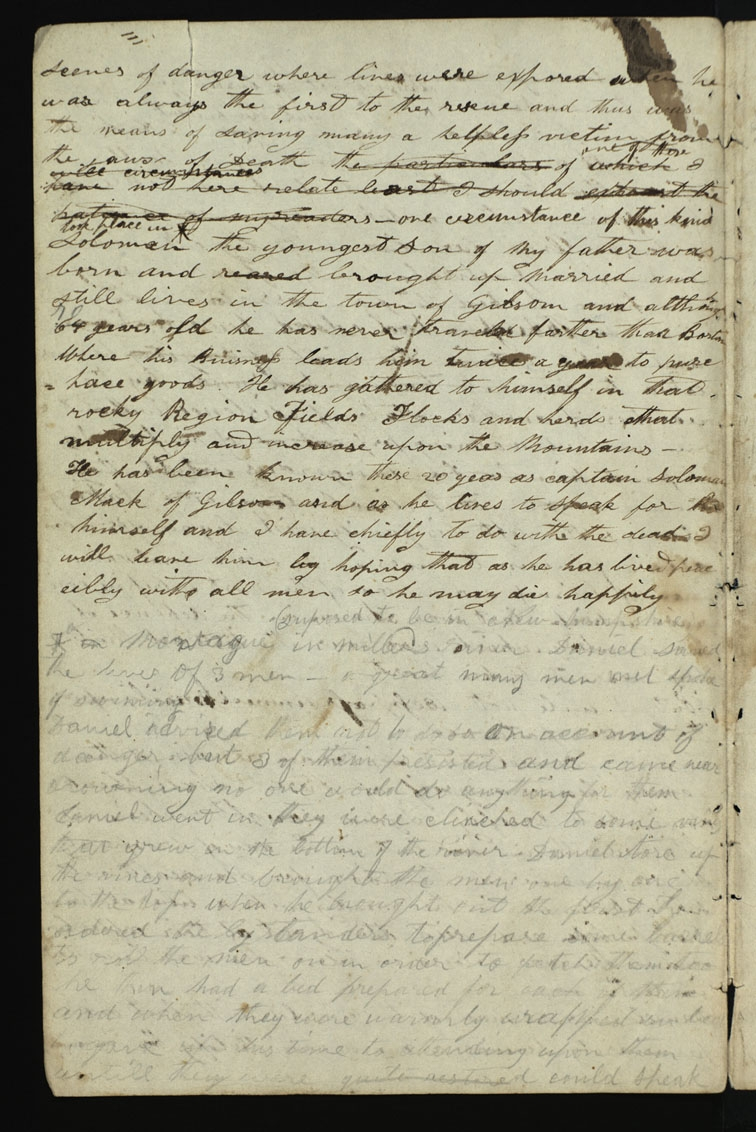 scenes of danger where lives were exposed when he
was always the first to the rescue and thus was
the means of saving many a helpless victim from
one of these
the jaws of Death the particulars of which I
will circumstances
have not here relate least I should exhaust the
patience of my readers — one circumstance of this kind
took place in
Soloman the youngest son of my father was
born and reared brought up married and
still lives in the town of Gilsom and although
64 years old he has never traveld farther than Boston
Where his buisness leads him twice a year to purc
=hace goods. He has gathered to himself in that
rocky Region Fields Flocks and herds that
multiply and increase upon the Mountains —
He has been known these 20 years as captain Soloman
Mack of Gilsom and as he lives to speak for
himself and I have chiefly to do with the dead I
will leave him hoping that as he has lived peac
cibly with all men so he may die happily
Suposed to be in
in Montague in millers river Daniel saved
the lives of 3 men — a great many men
of swiming
Daniel advised them not to do so on account of
danger but 3 of them persisted and came near
drowning no one could do anything for them
Daniel went in they were clinched to some
that grew on the bottom of the river Daniel tore up
the vines and brought the men one by one
to the when he brought out the first he
ordered the by standers to prepare some barrels
to roll the men on in order to fetch them too
he then had a bed prepared for each of them
and when they were warmly wrapped
gave his time to attending upon them
untill they were quite restored could speak